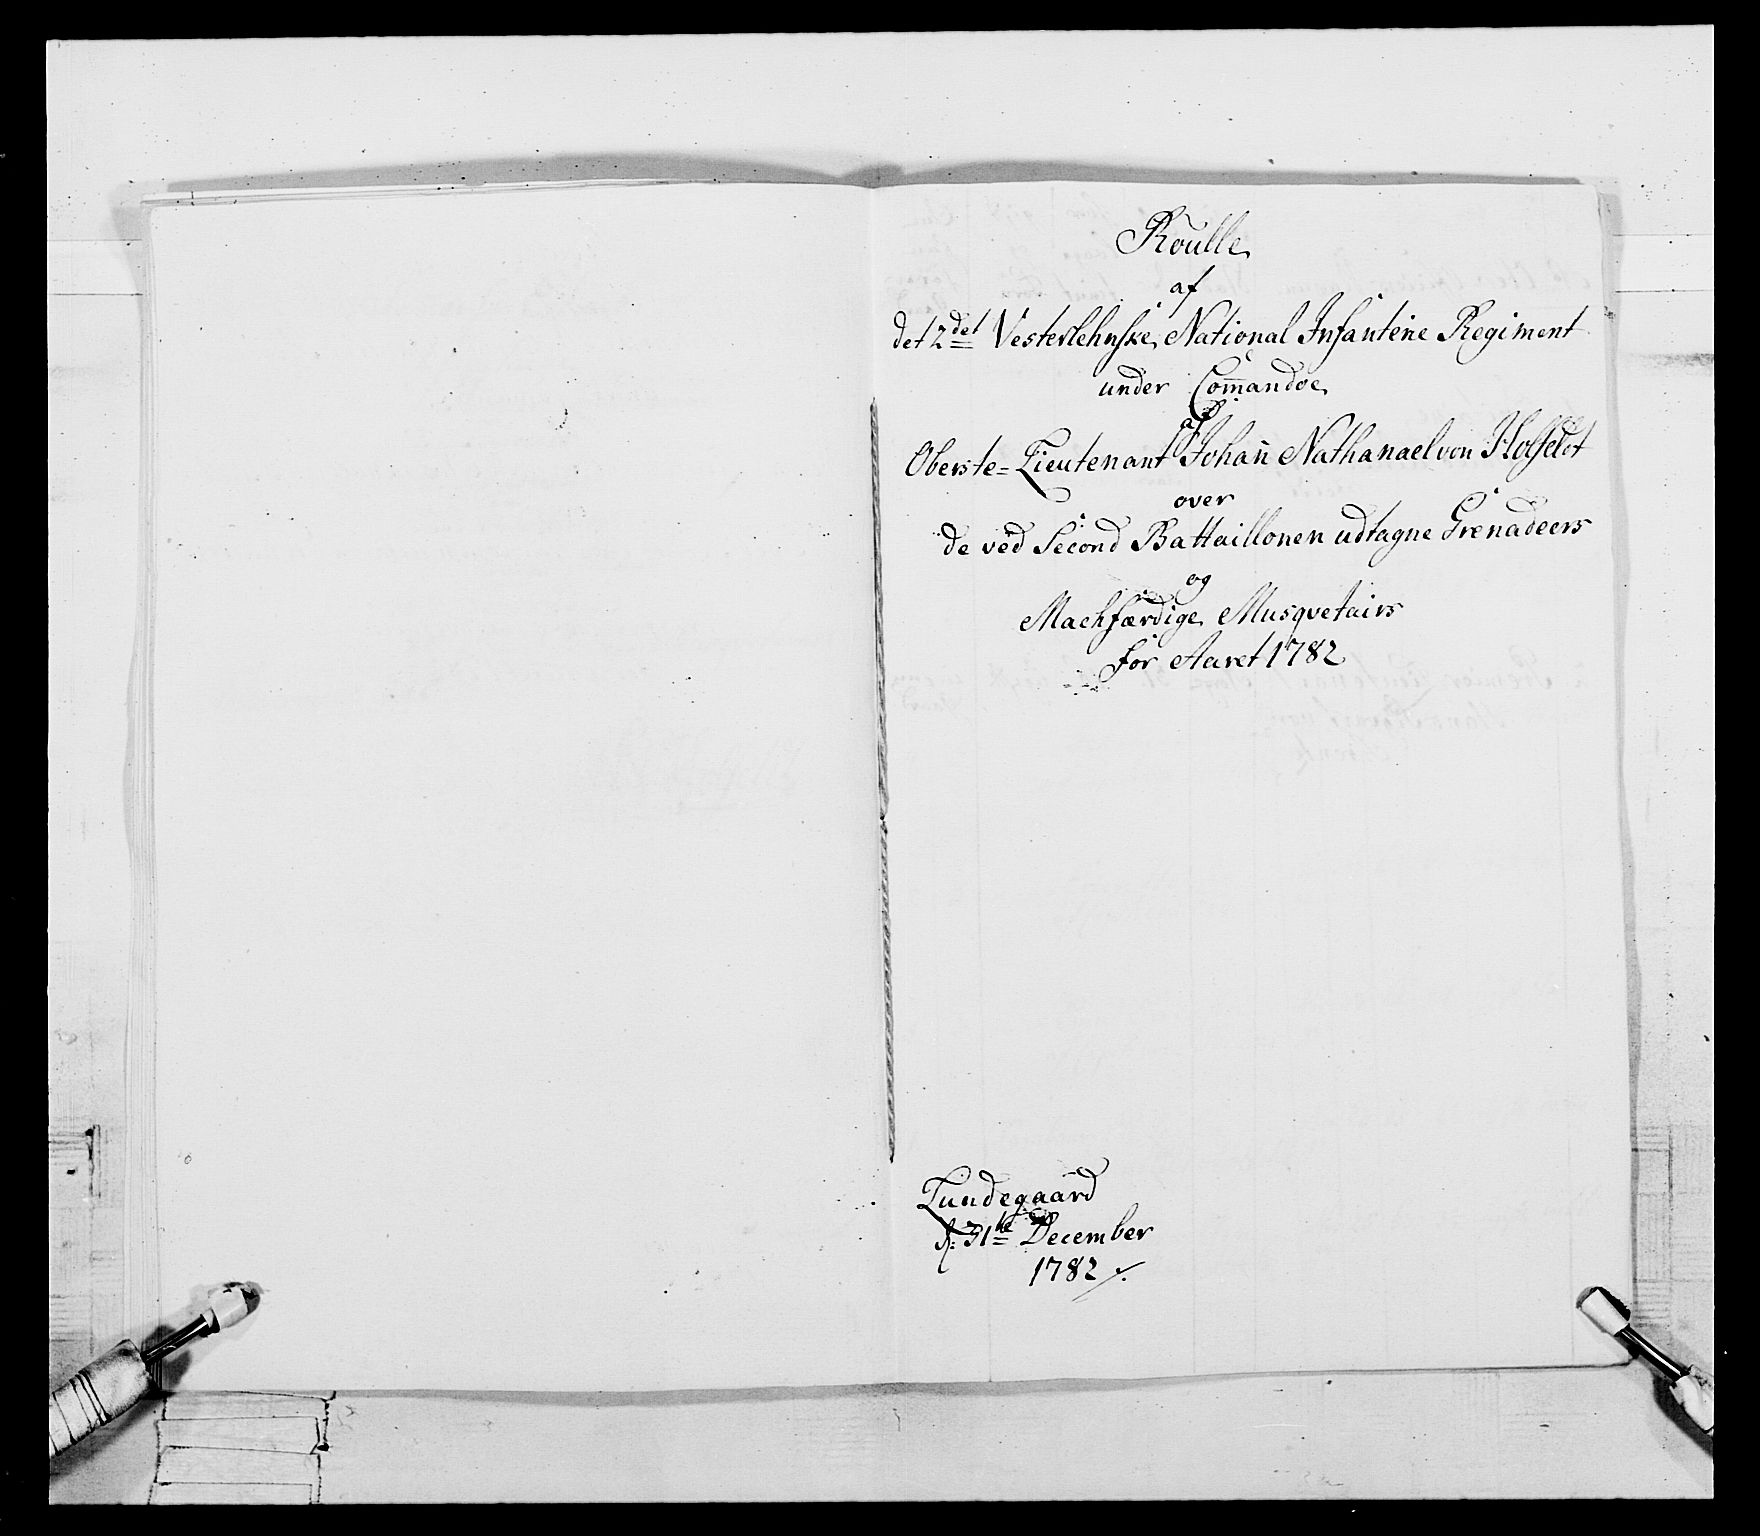 Roulle
af
det 2det Vesterlehnske National Infanterie Regiment
under Com̄andoe
af
Oberste-Lieutenant Johan̄ Nathanael von Holfeldt
over
de ved Second Battaillonen udtagne Grenadeers
og
Machfærdige Musqvetairs
for Aaret 1782
Lundegaard
d: 31te December
1782